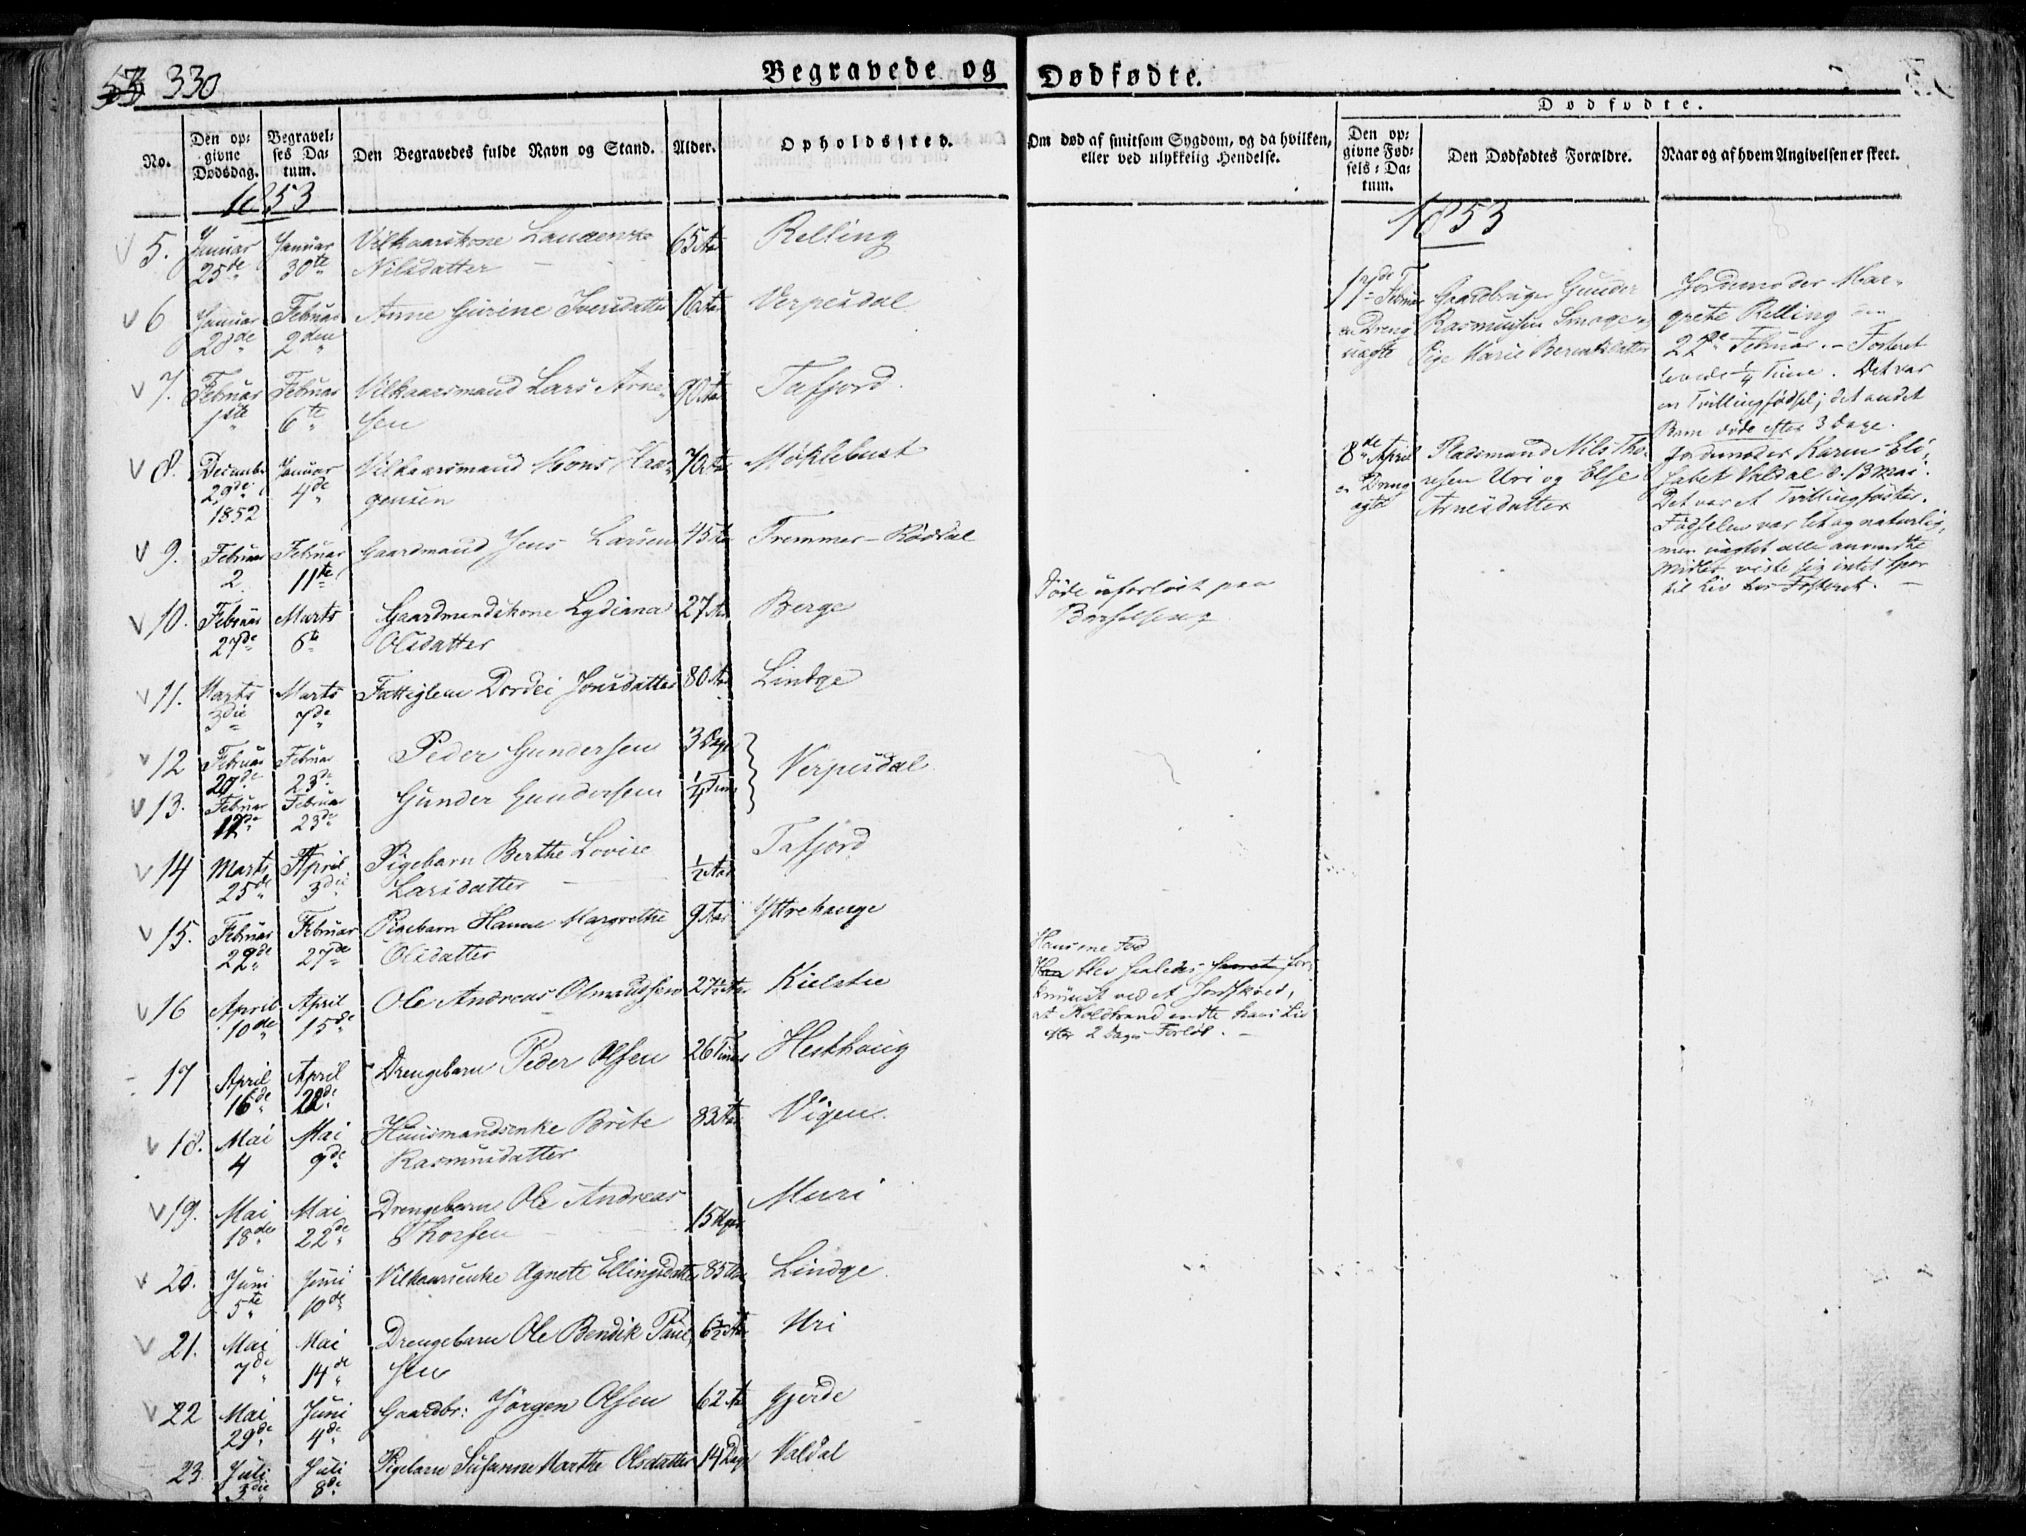 330
Begravede og Dødfødte.
Dødfødte.
No.
Den op-
givne
Dødsdag.
Begravel-
ses Da-
tum.
Den Begravedes fulde Navn og Stand.
Alder.
Opholdssted.
Om død af smitsom Sygdom, og da hvilken,
eller ved ulykkelig Hendelse.
Den op-
givne Fød-
sels-Da-
tum.
Den Dødfødtes Forældre.
Naar og af hvem Angivelsen er skeet.
1853
1853
5. Januar 25de Januar 30te Vilkaarskone
Nilsdatter 65 Aar Relling
6 Januar 28de Februar 2den Anne Gurine Iversdatter 16 Aar Verpesdal
7. Februar 1ste Februar 6te Vilkaarsmand Lars Arne-
sen 90 Aar Tafjord.
8. December 29de 1852 Januar 4de Vilkaarsmand Mons Haa-
gensen 70 Aar Møklebust
9. Februar 2 Februar 11te Gaardmand Jens Larsen 45 Aar Fremmer-Rødsal
10. Februar 27de Marts 6te Gaardmandskone Lydiana
Olsdatter 27 Aar Berge
Døde uforløst paa
Barselseng
11. Marts 3die Marts 7de Fattiglem Dordei Jonsdatter 80 Aar Lindge
12 Februar 20de Februar 23de Peder Gundersen 3 Dage Verpesdal
13. Februar 17de Februar 23de Gunder Gundersen 1/4 Time
14 Marts 25de April 3die Pigebarn Berthe Lovise
Larsdatter 1/2 Aar Tafjord
15. Februar 22de Februar 27de Pigebarn Hanne Margrethe
Olsdatter 9 Aar Yttrehauge
16 April 10de April 15de Ole Andreas Olmundsen 27 1/2 Aar Kielstie
Hans ene Fod
blev saaledes for-
knuust ved et Jordskred,
at Koldbrand endte hans Liv
efter 2 Dages Forløb. -
17 April 16de April 22de Drengebarn Peder Olsen 26 Timer Hesthaug
18. Mai 4 Mai 9de Huusmandsenke Brite
Rasmusdatter 83 Aar Vigen.
19. Mai 18de Mai 22de Drengebarn Ole Andreas
Thorsen 15 Uger Muri
20. Juni 5te Juni 10de Vilkaarsenke Agnete Ellingsdatter 85 Aar Lindge.
21. Mai 7de Mai 14de Drengebarn Ole Bendik Paul-
sen 6 1/2 Aar Uri
22 Mai 29de Juni 4de Gaardbr: Jørgen Olsen 62 Aar Gjerde
23 Juli 3die Juli 8de Pigebarn Susanne Marthe Olsdatter 14 Dage Valdal
17de Februar
en Dreng
uægte
Gaardbruger Gunder
Rasmussen Smoge og
Pige Marie Berentsdatter
Jordemoder Mar-
grete Relling den
22de Februar. - Fosteret
levede 1/4 Time. Det var
en Tvillingfødsel; det andet
Barn døde efter 3 Dage.
8de April
en Dreng
ægte
Pladsmand Nils Tho-
resen Uri og Else
Arnesdatter
Jordemoder Karen Eli-
sabet Valdal d. 13 Mai.
Det var et Tvillingfoster.
Fødselen var let og naturlig,
men uagtet alle anvendte
Midler viste sig intet Spor
til Liv hos Fosteret. -